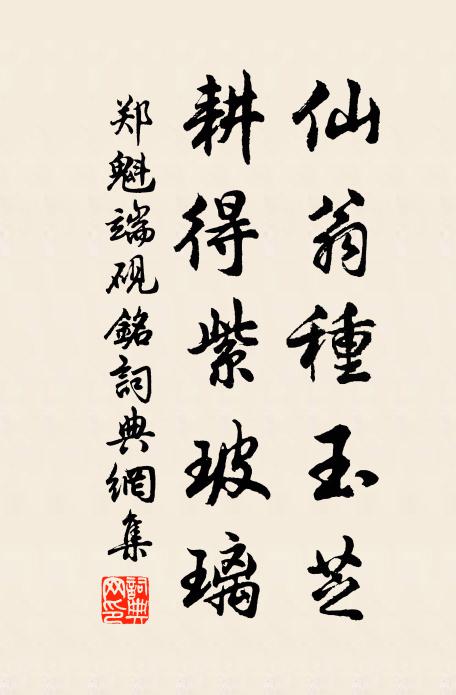 仙翁種玉芝
耕得紫玻璃
郑魁端砚銘詞典網集
詞典网印